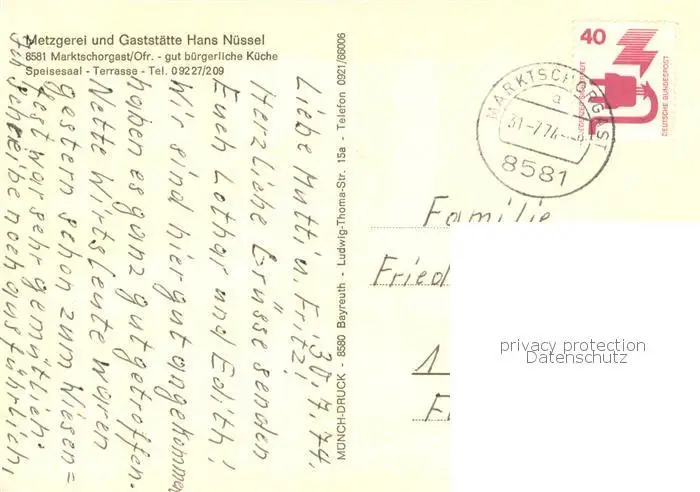 Metzgerei und Gaststätte Hans Nüssel
8581 Marktschorgast/Ofr. - gut bürgerliche Küche
Speisesaal - Terrasse - Tel. 09227/209
30.7.74.
Liebe Mutti u. Fritz!
Herzliche Grüsse senden
Euch Lothar und Edith!
Wir sind hier gut angekommen
haben es ganz gut getroffen.
Nette Wirtsleute waren
gestern schon zum Wiesen=
fest war sehr gemütlich.
Ich schreibe noch ausführlich,
MÜNCH-DRUCK - 8580 Bayreuth - Ludwig-Thoma-Str. 15a - Telefon 0921/66006
MARKTSCHORGAST
a
31.-7.74.
8581
40
DEUTSCHE BUNDESPOST
Familie
Fried
1
privacy protection
Datenschutz